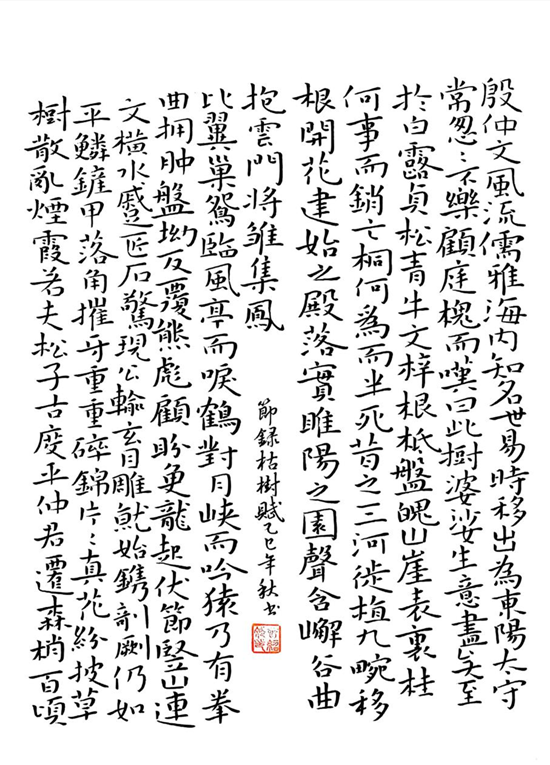 殷仲文風流儒雅海內知名世易時移出為東陽太守
常忽〻不樂顧庭槐而嘆曰此樹婆娑生意盡矣至
於白露貞松青牛文梓根柢盤魄山崖表裏桂
何事而銷亡桐何為而半死昔之三河徙植九畹移
根開花建始之殿落實睢陽之園聲含嶰谷曲
抱雲門將雛集鳳
比翼巢鴛臨風亭而唳鶴對月峽而吟猿乃有拳
曲拥肿盤坳反覆熊彪顧盼魚龍起伏節豎山連
文橫水蹙匠石驚現公輸玄目雕就始鐫剞劂仍如
平鱗鏟甲落角摧牙重重碎錦片〻真花紛披草
樹散亂煙霞若夫松子古度平仲君遷森梢百頃
節錄枯樹賦乙巳年秋书